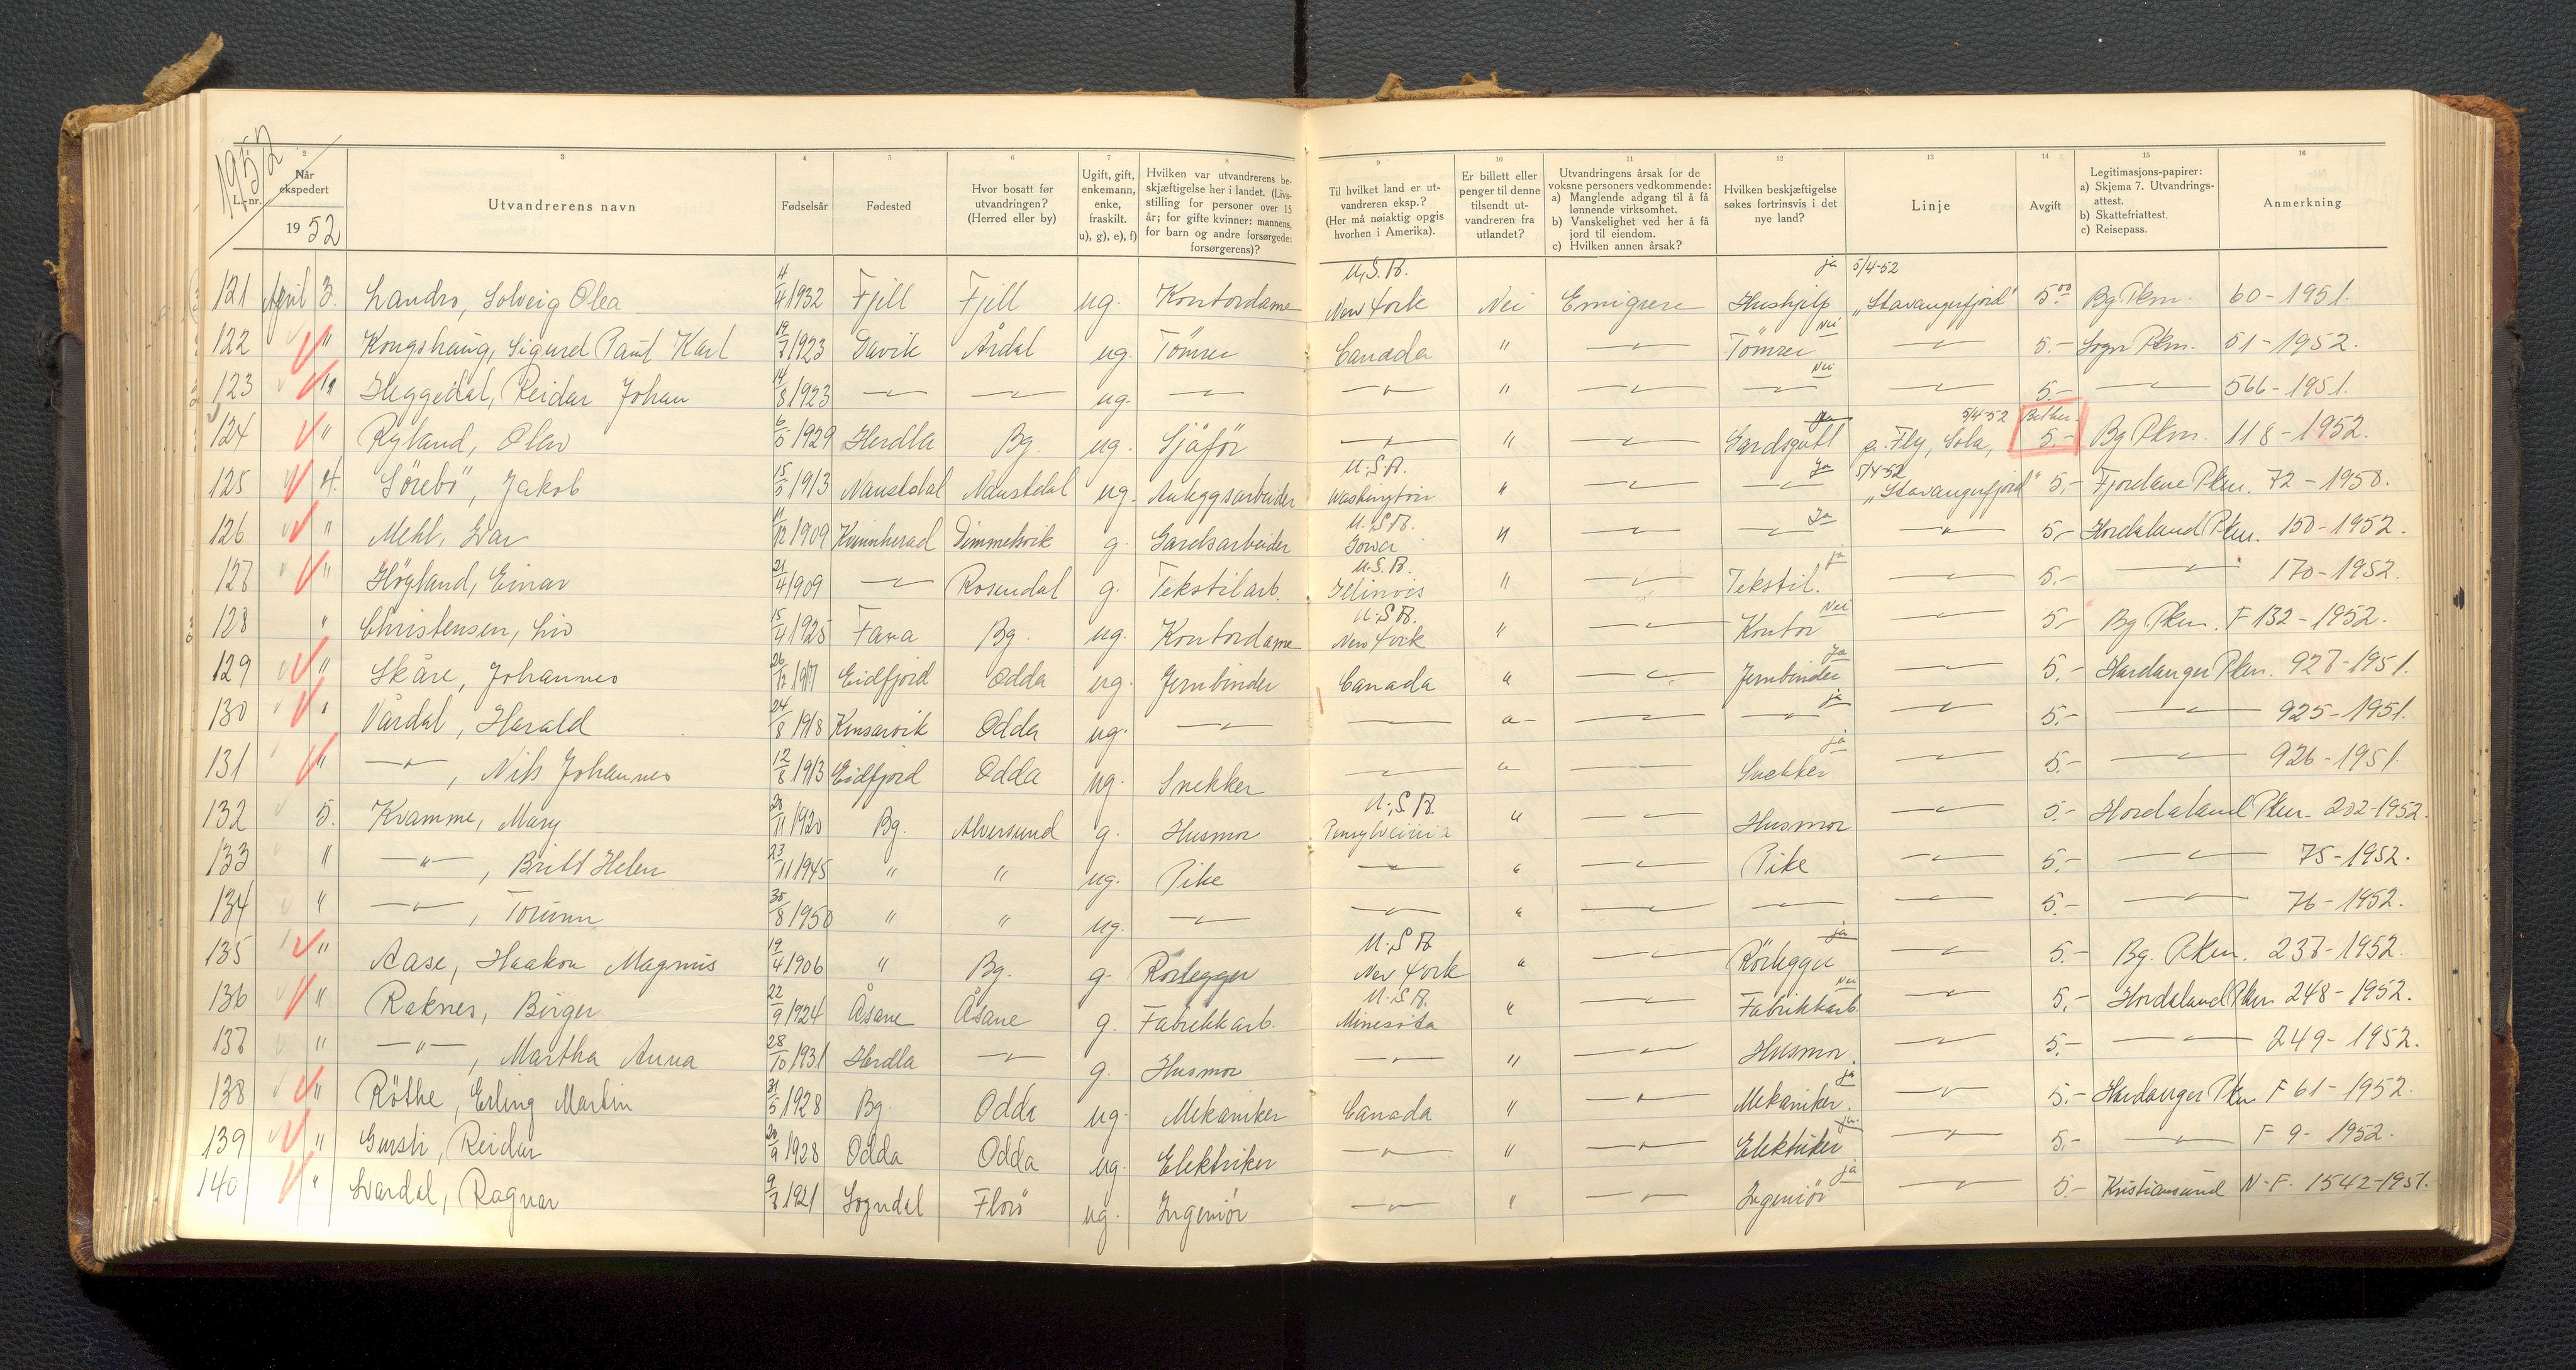 1952
1 2 3 4 5 6 7 8 9 10 11 12 13 14 15 16
L.-nr. Når ekspedert 1952 Utvandrerens navn Fødselsår Fødested Hvor bosatt før utvandringen? (Herred eller by) Ugift, gift, enkemann, enke, fraskilt. u), g), e), f) Hvilken var utvandrerens beskjæftigelse her i landet. (Livsstilling for personer over 15 år; for gifte kvinner: mannens, for barn og andre forsørgede: forsørgerens)? Til hvilket land er utvandreren eksp.? (Her må nøiaktig opgis hvorhen i Amerika). Er billett eller penger til denne tilsendt utvandreren fra utlandet? Utvandringens årsak for de voksne personers vedkommende: a) Manglende adgang til å få lønnende virksomhet. b) Vanskelighet ved her å få jord til eiendom. c) Hvilken annen årsak? Hvilken beskjæftigelse søkes fortrinsvis i det nye land? Linje Avgift Legitimasjons-papirer: a) Skjema 7. Utvandringsattest. b) Skattefriattest. c) Reisepass. Anmerkning
121 April 3. Landro, Solveig Olea 4/4 1932 Fjell Fjell ug. Kontordame U.S.A. New York Nei Emigrere Hushjelp ja 5/4-52 "Stavangerfjord" 5.00 Bg Pkm. 60-1951.
122 " Kongshaug, Sigurd Paul Karl 19/7 1923 Davik Årdal ug. Tömrer Canada " —"— Tömrer Nei —"— 5.- Sogn Pkm. 51-1952.
123 " Heggedal, Reidar Johan 14/8 1923 —"— —"— ug. —"— —"— " —"— —"— Nei —"— 5.- —"— 566-1951.
124 " Ryland, Olav 6/5 1929 Herdla Bg. ug. Sjåför —"— " —"— Gardsgutt Ja 5/4-52 p. Fly, Sola, 5.- Bg Pkm. 118-1952.
125 4. Sörebö, Jakob 15/5 1913 Naustdal Naustdal ug. Anleggsarbeider U.S.A. Washington " —"— —"— Ja 5/4-52 "Stavangerfjord" 5.- Fjordane Pkm. 72-1950.
126 " Mehl, Ivar 11/12 1909 Kvinnherad Dimmelsvik g. Gardsarbeider U.S.A. Iowa " —"— —"— Ja —"— 5.- Hordaland Pkm. 150-1952.
127 " Höyland, Einar 21/4 1909 —"— Rosendal g. Tekstilarb. U.S.A. Illinois " —"— Tekstil. ja —"— 5.- —"— 170-1952.
128 " Christensen, Liv 15/4 1925 Fana Bg. ug. Kontordame U.S.A. New York " —"— Kontor Nei —"— 5.- Bg Pkm. F 132-1952.
129 " Skåre, Johannes 26/12 1917 Eidfjord Odda ug. Jernbinder Canada " —"— Jernbinder Ja —"— 5.- Hardanger Pkm. 927-1951.
130 " Vårdal, Harald 24/8 1918 Kinsarvik Odda ug. —"— —"— " —"— —"— ja —"— 5.- —"— 925-1951.
131 " —"—, Nils Johannes 12/8 1913 Eidfjord Odda ug. Snekker —"— " —"— Snekker ja —"— 5.- —"— 926-1951.
132 5. Kvamme, Mary 20/11 1920 Bg. Alversund g. Husmor U.S.A. Pensylvania " —"— Husmor —"— 5.- Hordaland Pkm. 202-1952.
133 " —"—, Britt Helen 23/11 1945 " " ug. Pike —"— " —"— Pike —"— 5.- —"— 75-1952.
134 " —"—, Torunn 30/8 1950 " " ug. —"— —"— " —"— —"— —"— 5.- —"— 76-1952.
135 " Aase, Haakon Magnus 19/4 1906 " Bg. g. Rörlegger U.S.A. New York " —"— Rörlegger ja —"— 5.- Bg. Pkm. 237-1952.
136 " Raknes, Birger 22/9 1924 Åsane Åsane g. Fabrikkarb. U.S.A. Minesota " —"— Fabrikkarb. Nei —"— 5.- Hordaland Pkm 248-1952.
137 " —"—, Martha Anna 28/10 1931 Herdla —"— g. Husmor —"— " —"— Husmor. —"— 5.- —"— 249-1952.
138 " Röthe, Erling Martin 31/5 1928 Bg. Odda ug. Mekaniker Canada " —"— Mekaniker. ja —"— 5.- Hardanger Pkm F 61-1952.
139 " Reidar 20/9 1928 Odda Odda ug. Elektriker —"— " —"— Elektriker ja —"— 5.- —"— F 9-1952.
140 " Svardal, Ragnar 9/7 1921 Sogndal Florö ug. Ingeniör —"— " —"— Ingeniör ja —"— 5.- Kristiansund N-F. 1542-1951.